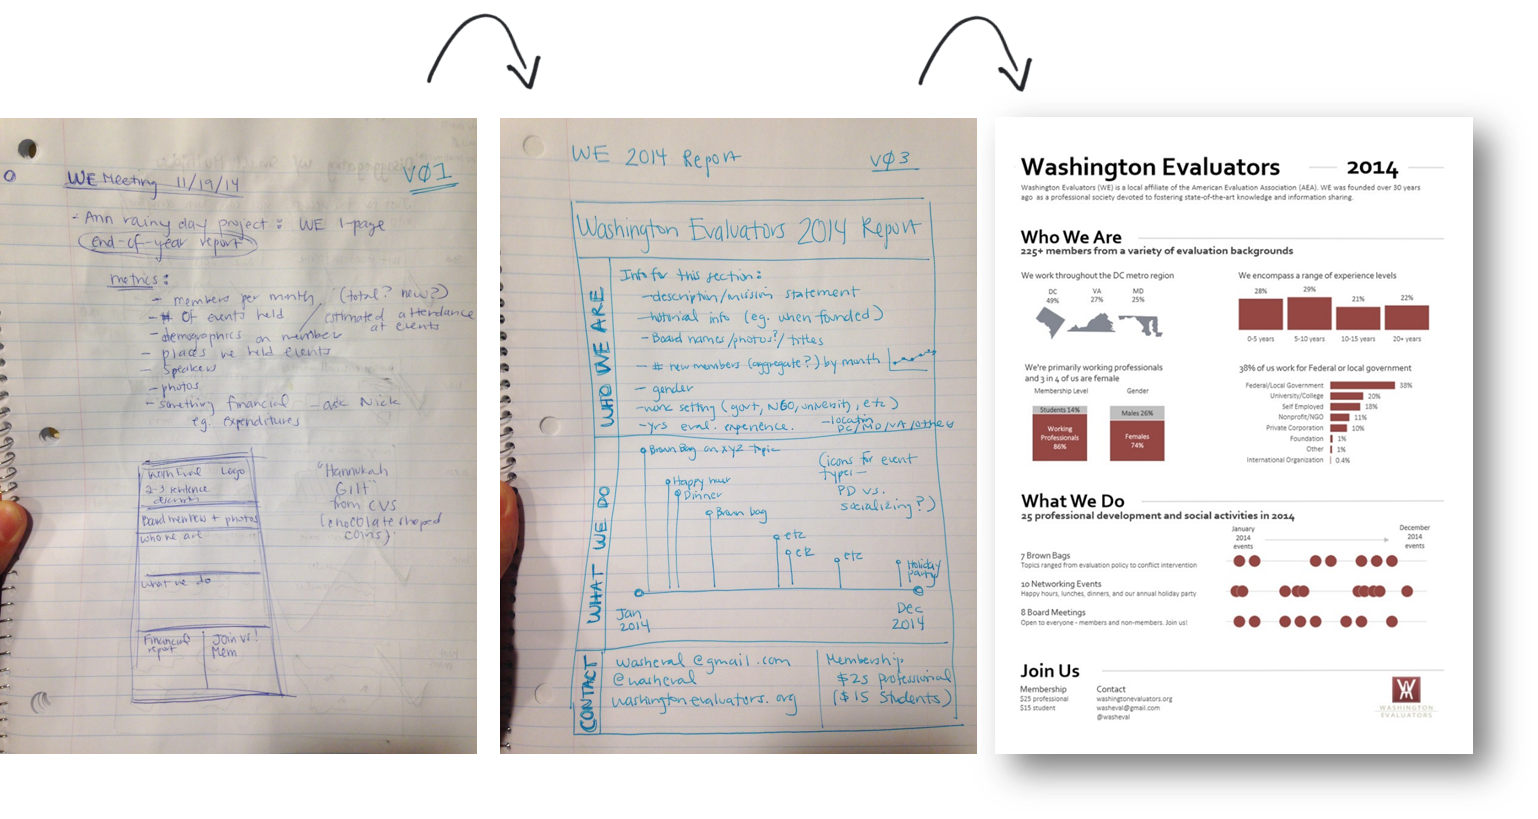 WE Meeting 11/19/14
VØ1
- Ann rainy day project : WE 1-page
end-of-year report
metrics :
- members per month (total? new?)
- # of events held / estimated attendance at events
- demographics on members
- places we held events
- speakers
- photos
- something financial - ask Nick
eg. expenditures
Wash Eval Logo
2-3 sentence
Board members + photos
who we are
what we do
Financial
report
Join us!
Mem
"Hannukah
Gilt"
from CVS
(chocolate shaped
coins)
WE 2014 Report
VØ3
Washington Evaluators 2014 Report
WHO WE ARE
Info for this section:
- description/mission statement
- historical info (eg. when founded)
- Board names/photos?/titles
- # new members (aggregate?) by month
- gender
- work setting (govt, NGO, university, etc)
- yrs eval. experience.
- location
DC/MD/VA/others
WHAT WE DO
Brown Bag on xyz topic
(icons for event
types—
PD vs.
socializing?)
Happy hour
Dinner
Brown bag
etc
etc
etc
Holiday
party
Jan
2014
Dec
2014
CONTACT
washeval@gmail.com
@washeval
washingtonevaluators.org
Membership
$25 professional
($15 students)
Washington Evaluators 2014
Washington Evaluators (WE) is a local affiliate of the American Evaluation Association (AEA). WE was founded over 30 years
ago as a professional society devoted to fostering state-of-the-art knowledge and information sharing.
Who We Are
225+ members from a variety of evaluation backgrounds
We work throughout the DC metro region
DC VA MD
49% 27% 25%
We encompass a range of experience levels
28% 29% 21% 22%
0-5 years 5-10 years 10-15 years 20+ years
We're primarily working professionals
and 3 in 4 of us are female
Membership Level Gender
Students 14% Males 26%
Working
Professionals
86%
Females
74%
38% of us work for Federal or local government
Federal/Local Government 38%
University/College 20%
Self Employed 18%
Nonprofit/NGO 11%
Private Corporation 10%
Foundation 1%
Other 1%
International Organization 0.4%
What We Do
25 professional development and social activities in 2014
January
2014
events
December
2014
events
7 Brown Bags
Topics ranged from evaluation policy to conflict intervention
10 Networking Events
Happy hours, lunches, dinners, and our annual holiday party
8 Board Meetings
Open to everyone - members and non-members. Join us!
Join Us
Membership
$25 professional
$15 student
Contact
washingtonevaluators.org
washeval@gmail.com
@washeval
WASHINGTON
EVALUATORS